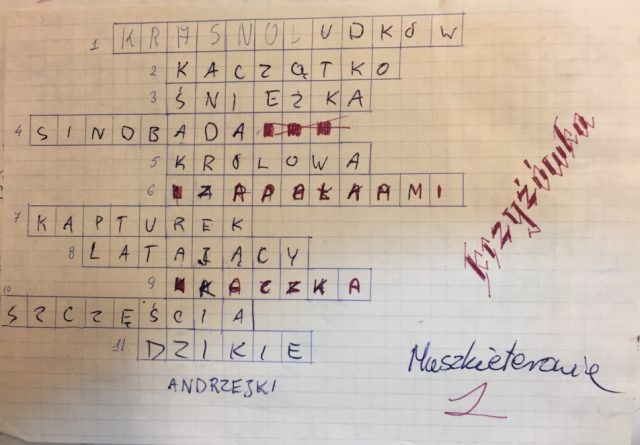 1 KRASNOLUDKÓW
2 KACZĄTKO
3 ŚNIEŻKA
4 SINOBADA
5 KRÓLOWA
6
7 KAPTUREK
8 LATAJĄCY
9 KACZKA
10 SZCZĘŚCIA
11 DZIKIE
ANDRZEJKI
Krzyżówka
Muszkieterowie
1